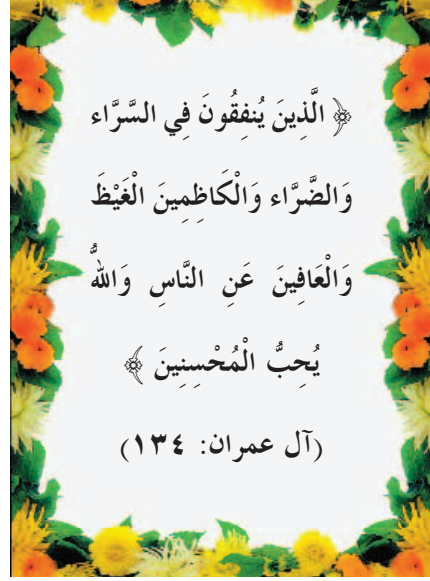 ﴿ الَّذِينَ يُنفِقُونَ فِي السَّرَّاء
وَالضَّرَّاء وَالْكَاظِمِينَ الْغَيْظَ
وَالْعَافِينَ عَنِ النَّاسِ وَاللهُ
يُحِبُّ الْمُحْسِنِينَ ﴾
(آل عمران: ١٣٤)